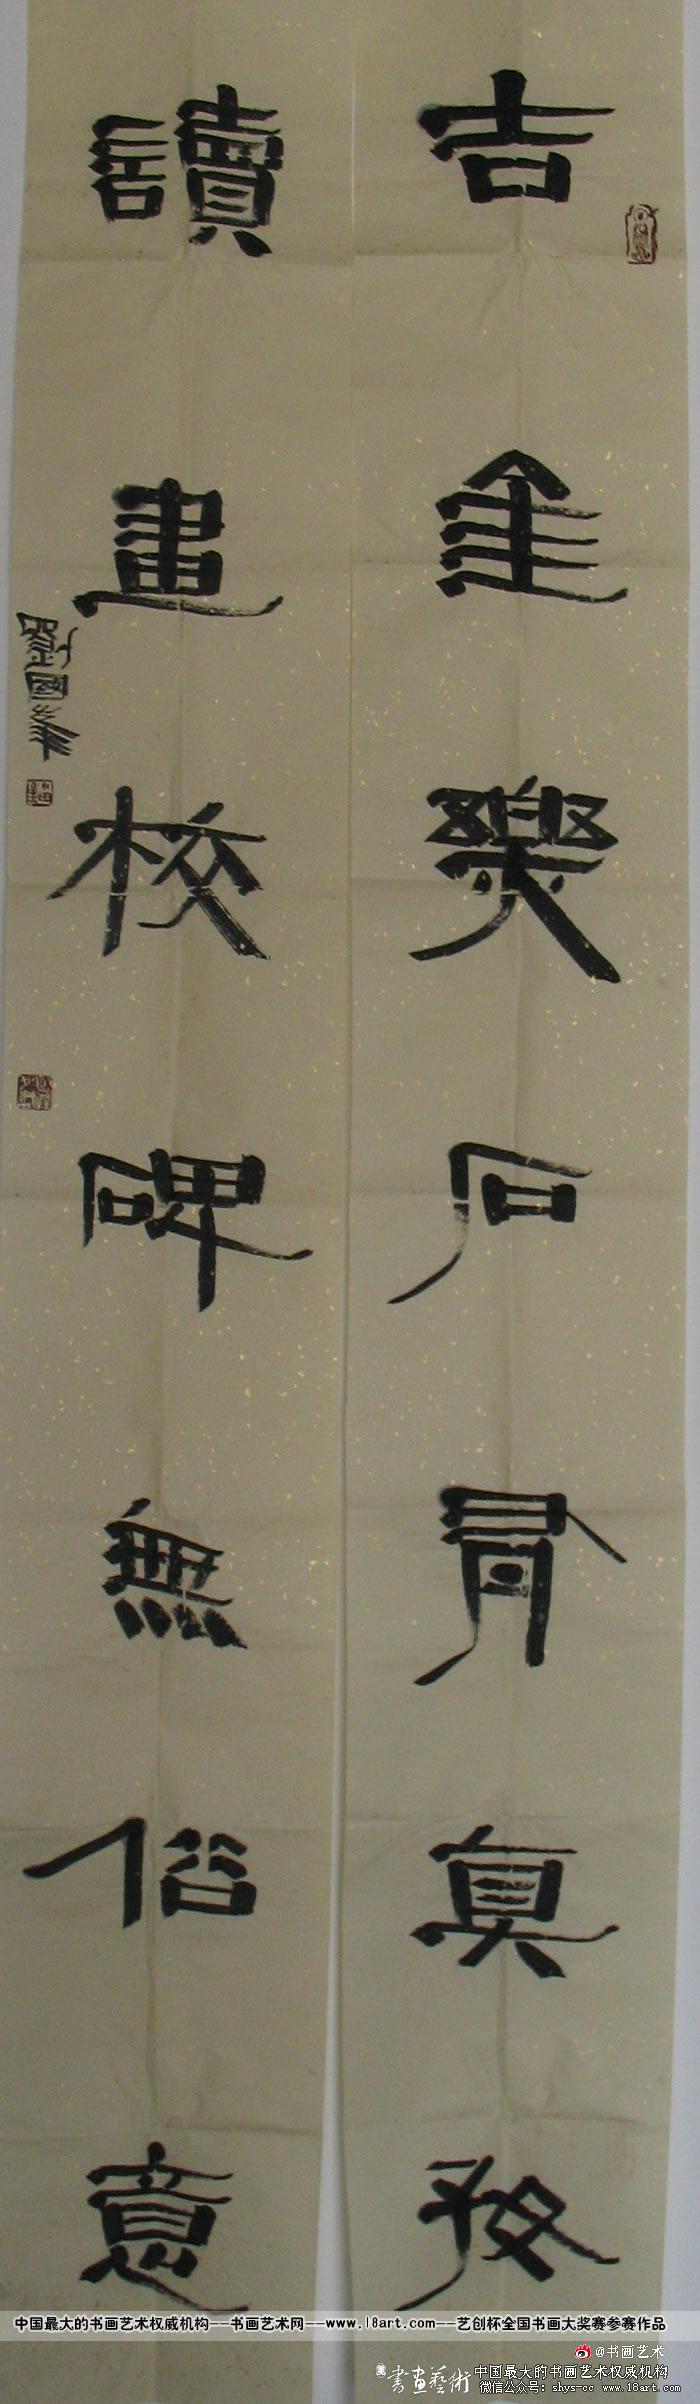 吉金樂石有真好
讀畫校碑無俗意
中国最大的书画艺术权威机构——书画艺术网——www.18art.com——艺创杯全国书画大奖赛参赛作品
@书画艺术
書画藝術
中国最大的书画艺术权威机构
微信公众号: shys-cc www.18art.com